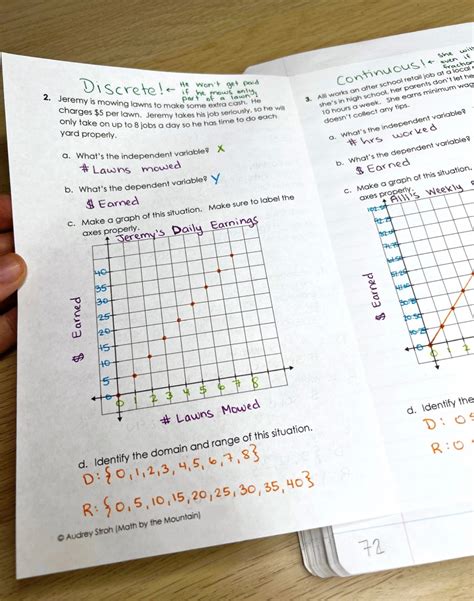 Discrete! ← He won't get paid
if he mows only
part of a lawn!
2. Jeremy is mowing lawns to make some extra cash. He
charges $5 per lawn. Jeremy takes his job seriously, so he will
only take on up to 8 jobs a day so he has time to do each
yard properly.
a. What's the independent variable? X
# Lawns mowed
b. What's the dependent variable? Y
$ Earned
c. Make a graph of this situation. Make sure to label the
axes properly.
Jeremy's Daily Earnings
40
35
30
25
20
15
10
5
0
0 1 2 3 4 5 6 7 8
$ Earned
# Lawns Mowed
d. Identify the domain and range of this situation.
D: {0,1,2,3,4,5,6,7,8}
R: {0,5,10,15,20,25,30,35,40}
© Audrey Stroh (Math by the Mountain)
Continuous! ← She will
even if
3. Alli works an after school retail job at a local
she's in high school, her parents don't let he
10 hours a week. She earns minimum wag
doesn't collect any tips.
a. What's the independent variable?
# hrs worked
b. What's the dependent variable?
$ Earned
c. Make a graph of this situation.
axes properly.
Alli's Weekly
$ Earned
0 1 2
d. Identify the
D: 0≤
R: 0
72